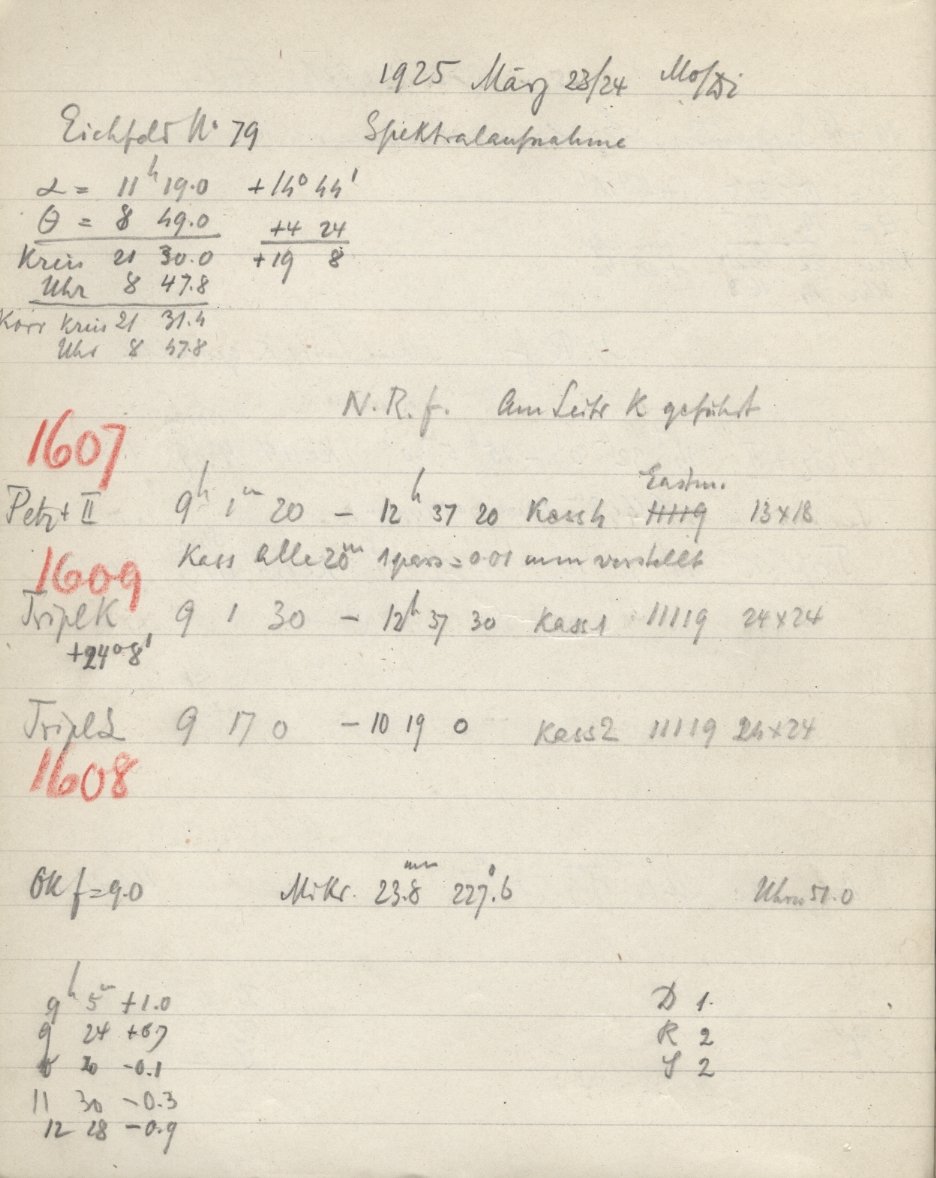 1925 März 23/24 Mo/Di
Eichfeld No 79 Spektralaufnahme
α = 11h 19.0 +14° 44'
θ = 8 49.0 +4 24
Kreis 21 30.0 +19 8
Uhr 8 47.8
Korr Kreis 21 31.4
Uhr 8 47.8
N.R.f. Am Leitr K geführt
1607
Eastm.
Petz + II 9h 1m 20 - 12h 37 20 Kass 4 11119 13x18
Kass alle 20m 1 pars = 0.01 mm verstellt
1609
Tripl K 9 1 30 - 12h 37 30 Kass 1 11119 24x24
+24° 8'
Tripl L 9 17 0 - 10 19 0 Kass 2 11119 24x24
1608
OK f = 9.0 Mikr. 23.8mm 227.°6 Uhr 51.0
9h 5m +1.0 D 1.
9 24 +0.7 R 2
30 -0.1 S 2
11 30 -0.3
12 28 -0.9